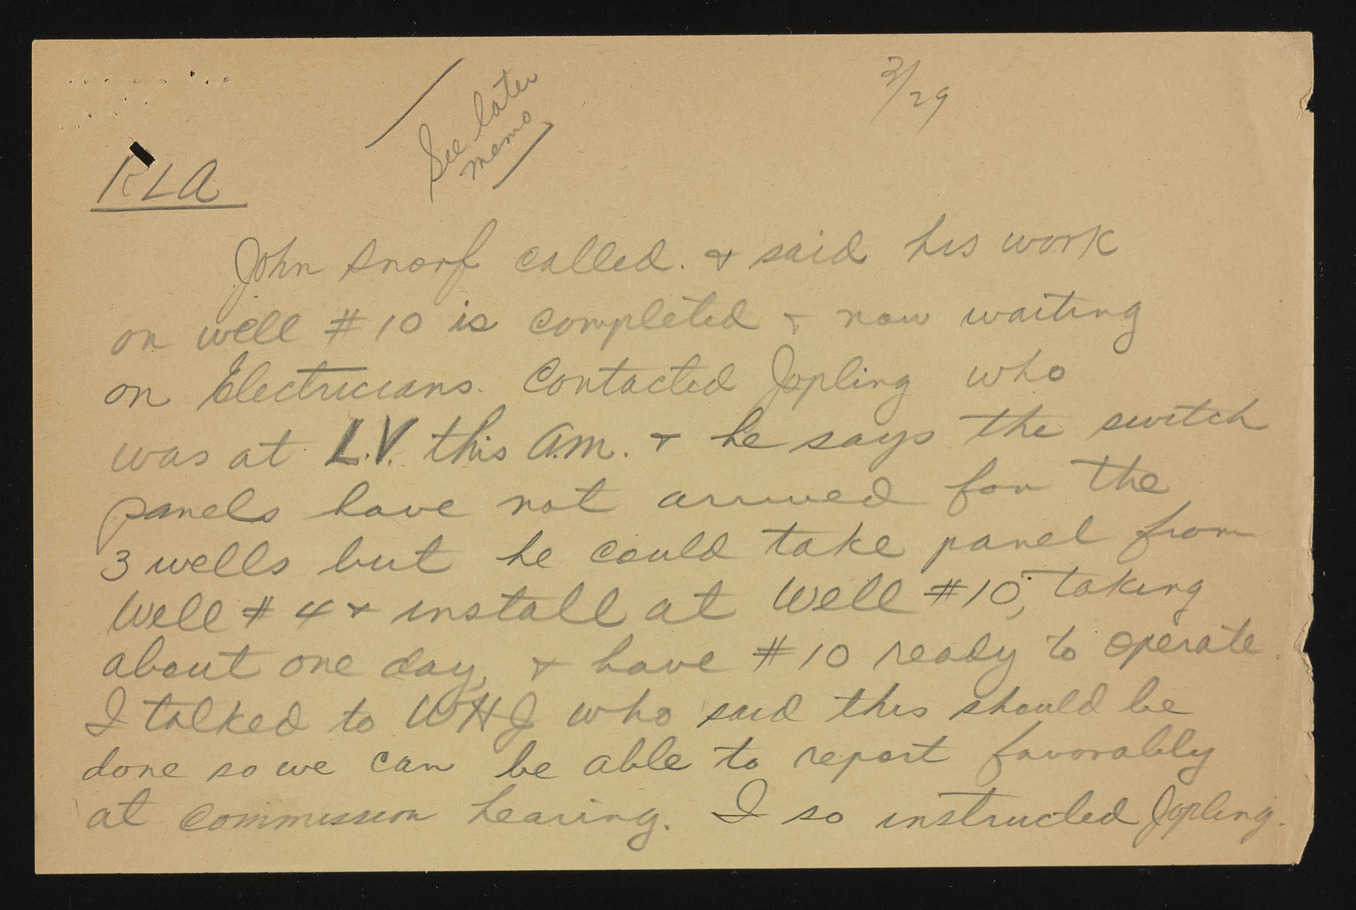 2/29
See later
memo
RLA
John Snorf called. & said his work
on well #10 is completed & now waiting
on Electricians. Contacted Jopling who
was at L.V. this A.M. & he says the switch
panels have not arrived for the
3 wells but he could take panel from
Well #4 & install at Well #10, taking
about one day, & have #10 ready to operate.
I talked to WHJ who said this should be
done so we can be able to report favorably
at commission hearing. I so instructed Jopling.